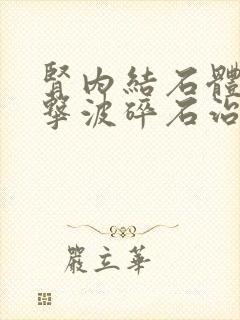 腎內結石體
擊波碎石治
嚴立華